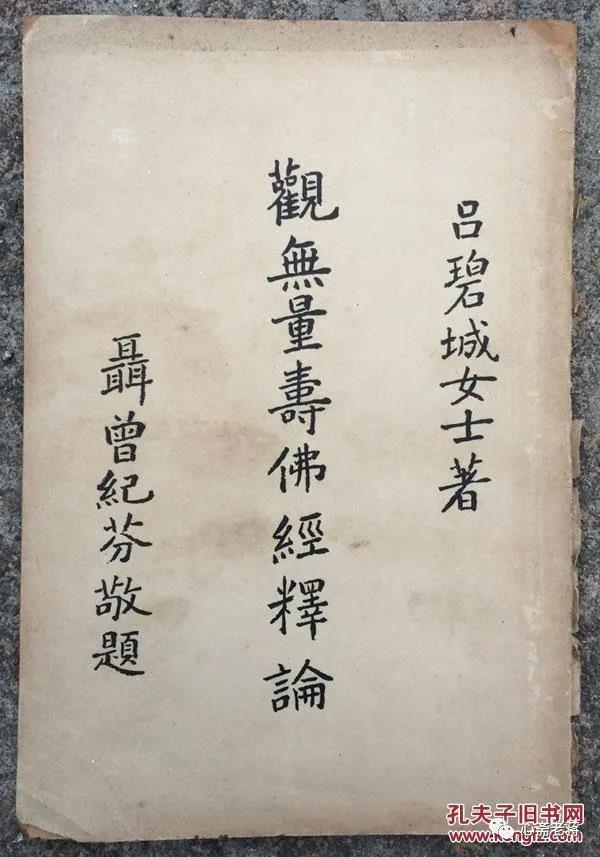 呂碧城女士著
觀無量壽佛經釋論
聶曾紀芬敬題
孔夫子旧书网
www.kongfz.com